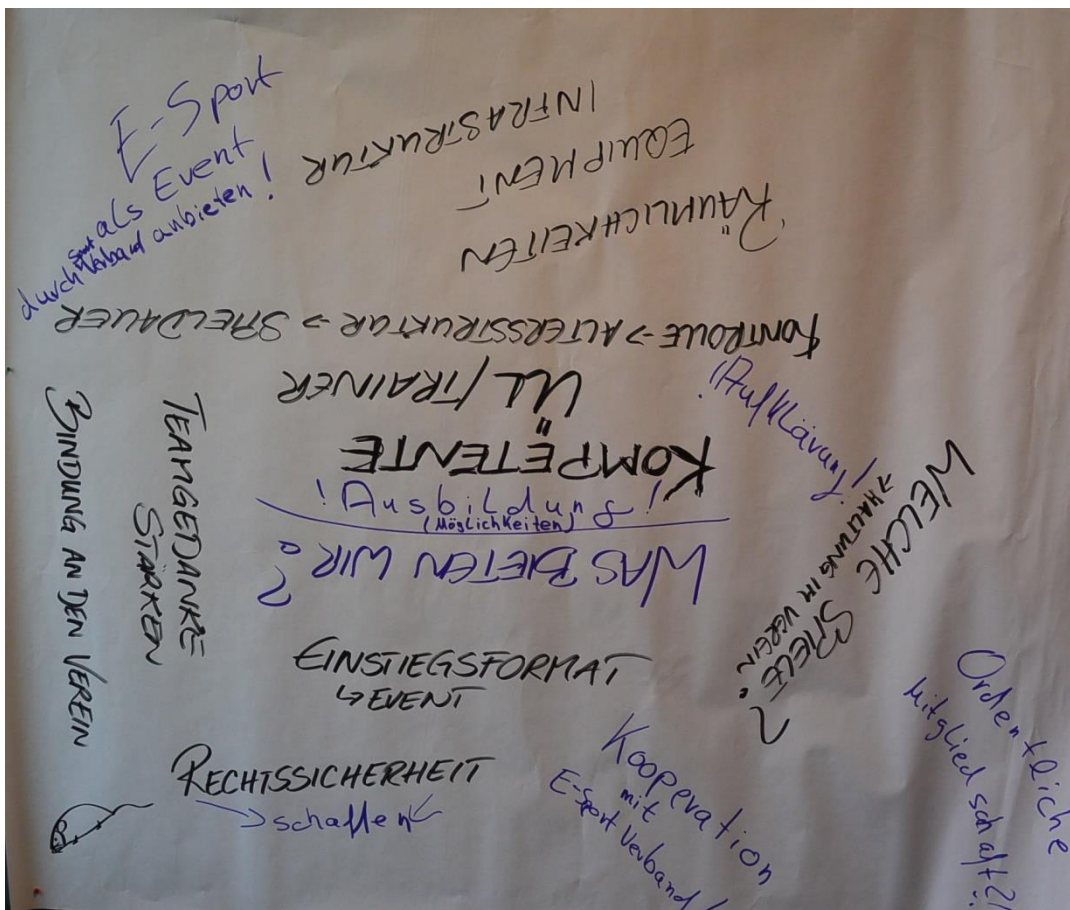 E-Sport
als Event
durch Sportverband anbieten!
INFRASTRUKTUR
EQUIPMENT
RÄUMLICHKEITEN
KONTROLLE → ALTERSSTRUKTUR → SPIELDAUER
KOMPETENTE
ÜL/TRAINER
!Aufklärung!
!Ausbildung!
(Möglichkeiten)
WAS BIETEN WIR?
WELCHE SPIELE?
→ HALTUNG IM VEREIN
TEAMGEDANKE
STÄRKEN
BINDUNG AN DEN VEREIN
EINSTIEGSFORMAT
↳ EVENT
RECHTSSICHERHEIT
→ schaffen ←
Kooperation
mit
E-Sport Verband!
Ordentliche
Mitgliedschaft?!